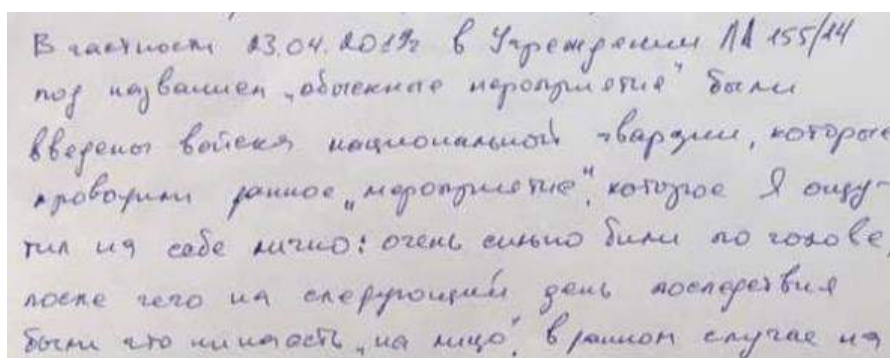 В частности 23.04.2019г в Учреждении ЛА 155/14
под названием „обыскные мероприятие“ были
введены войска национальной гвардии, которые
проводили данное „мероприятие“, которое Я ощу-
тил на себе лично: очень сильно били по голове,
после чего на следующий день последствия
были что ни на есть „на лицо“, в данном случае на